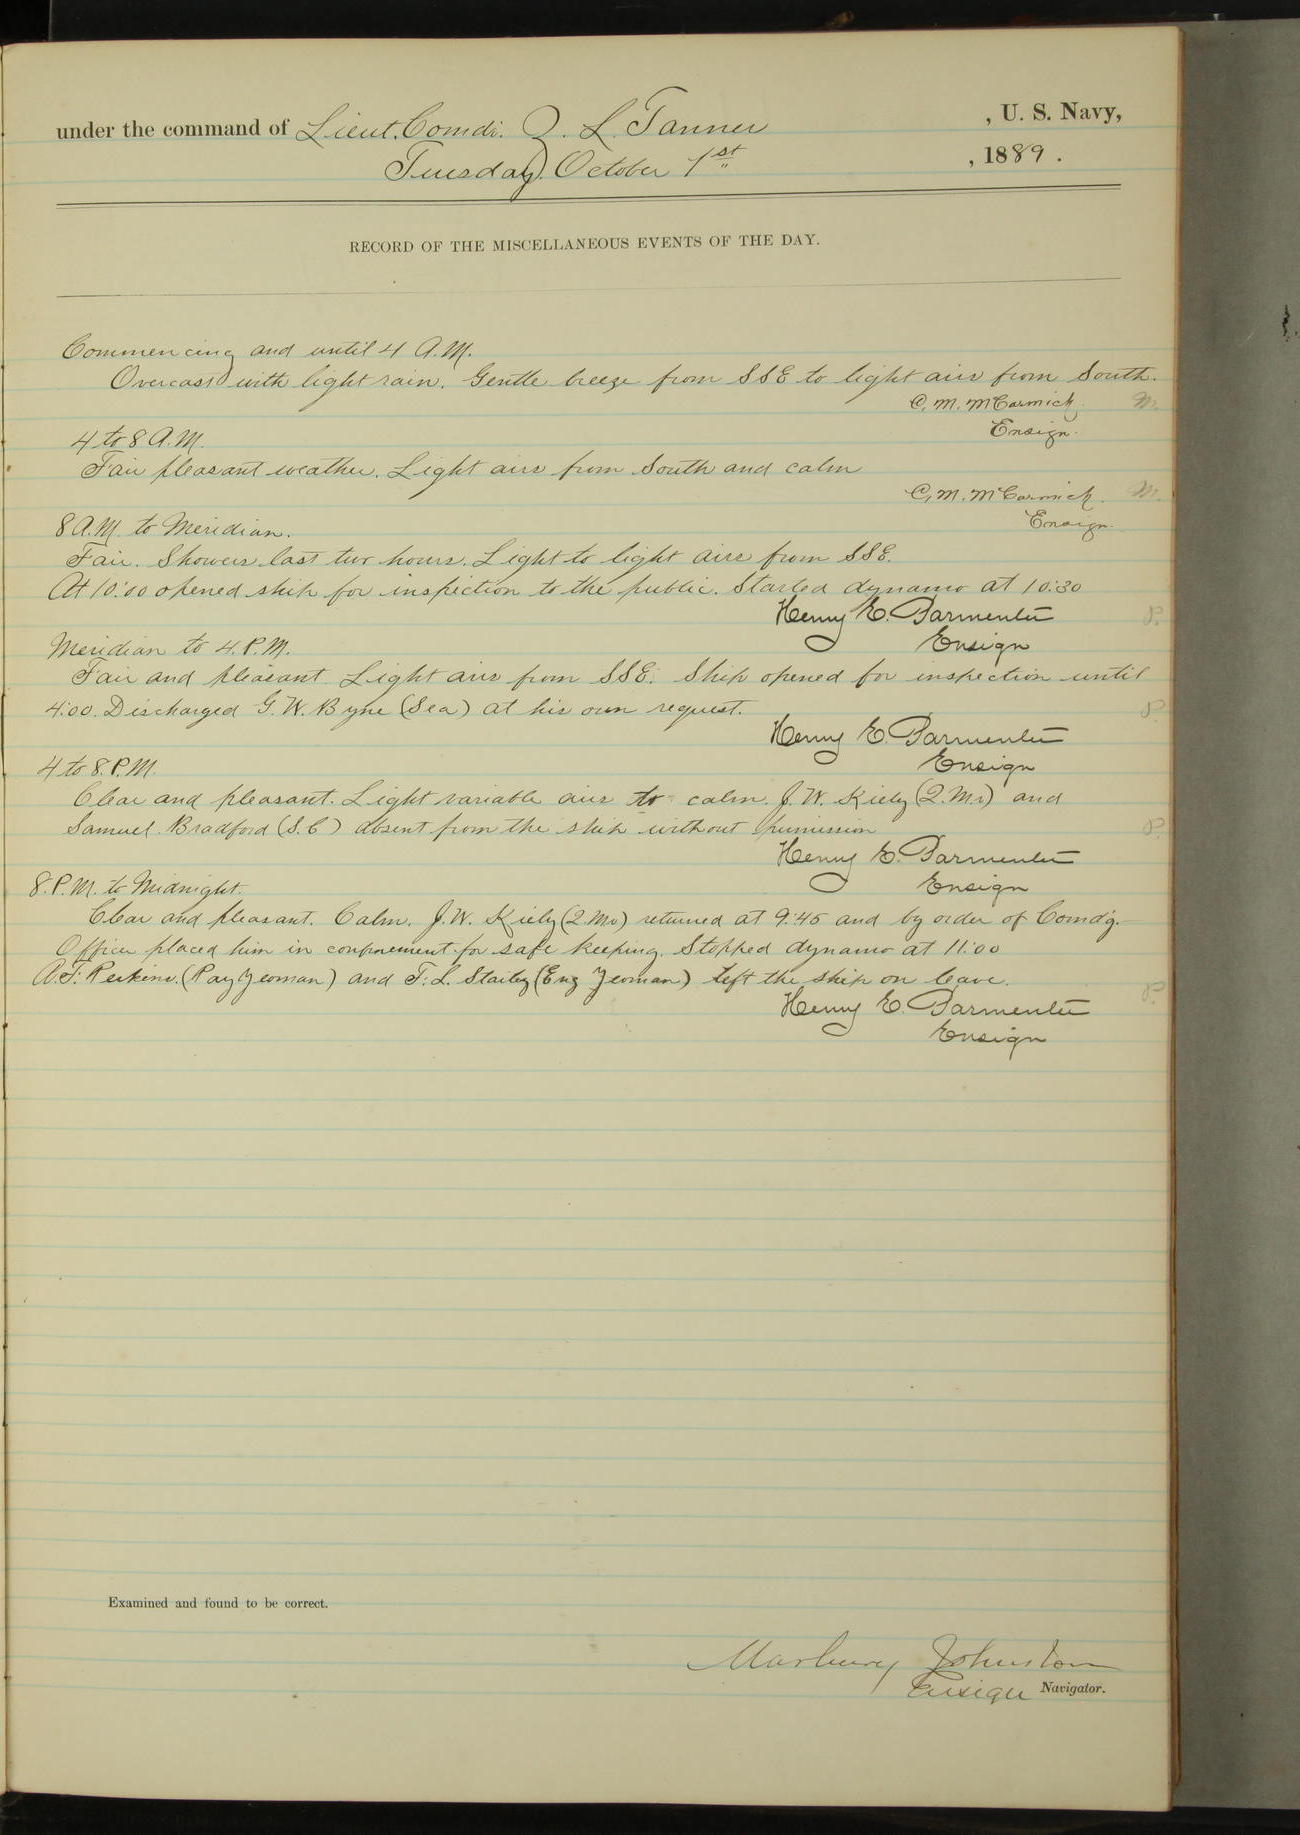 under the command of Lieut. Comdr. Z. L. Tanner , U. S. Navy,
Tuesday October 1st , 1889 .
RECORD OF THE MISCELLANEOUS EVENTS OF THE DAY.
Commencing and until 4 A.M.
Overcast with light rain. Gentle breeze from SSE to light airs from South.
C. M. McCormick. M.
Ensign.
4 to 8 A.M.
Fair pleasant weather. Light airs from South and calm
C. M. McCormick. M.
Ensign.
8 A.M. to Meridian.
Fair. Showers last two hours. Light to light airs from SSE.
At 10:00 opened ship for inspection to the public. Started dynamo at 10:30
Henry E. Parmenter P.
Ensign
Meridian to 4. P.M.
Fair and pleasant. Light airs from SSE. Ship opened for inspection until
4:00. Discharged G. W. Byne (Sea) at his own request. P.
Henry E. Parmenter
Ensign
4 to 8. P.M.
Clear and pleasant. Light variable airs to calm. J. W. Kiely (2. Mr) and
Samuel Bradford (S. C) absent from the ship without permission P.
Henry E. Parmenter
Ensign
8. P.M. to Midnight.
Clear and pleasant. Calm. J. W. Kiely (2. Mr) returned at 9:45 and by order of Comd'g.
Officer placed him in confinement for safe keeping. Stopped dynamo at 11:00
A. F. Perkins. (Pay Yeoman) and F. L. (Eng Yeoman) left the ship on leave. P.
Henry E. Parmenter
Ensign
Examined and found to be correct.
Marbury Johnston
Ensign Navigator.